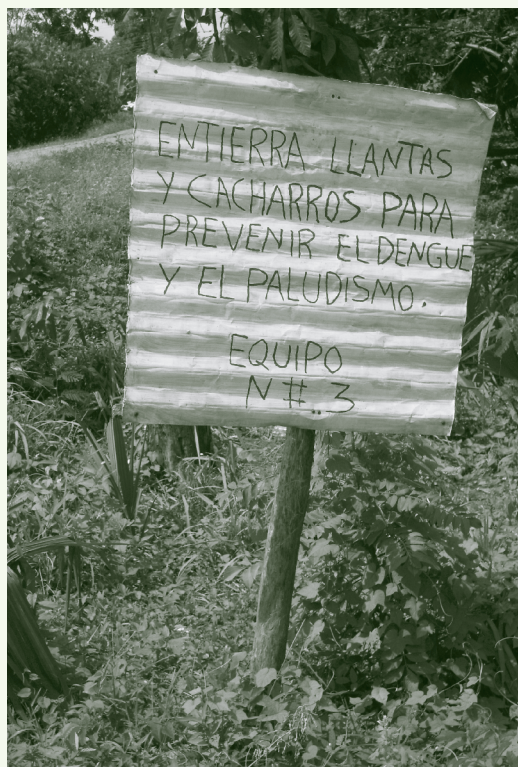 ENTIERRA LLANTAS
Y CACHARROS PARA
PREVENIR EL DENGUE
Y EL PALUDISMO.
EQUIPO
N # 3